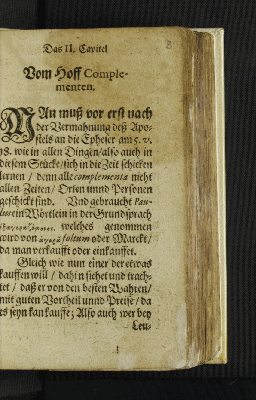 Das II. Capitel
8
Vom Hoff Comple-
menten.
MAn muß vor erst nach
der Vermahnung deß Apo-
stels an die Epheser am 5. v.
18. wie in allen Dingen/also auch in
diesem Stücke/sich in die Zeit schicken
lernen / denn alle complementa nicht
allen Zeiten/ Orten unnd Personen
geschickt sind. Und gebraucht Pau-
lus ein Wörtlein in der Grundsprach
welches genommen
wird von ἀγορὰ forum oder Marckt/
da man verkaufft oder einkauffet.
Gleich wie nun einer der etwas
kauffen will / dahin siehet und trach-
tet / daß er von den besten Wahren/
mit guten Vortheil unnd Preise/ da
es seyn kan kauffe; Also auch wer bey
Leu-